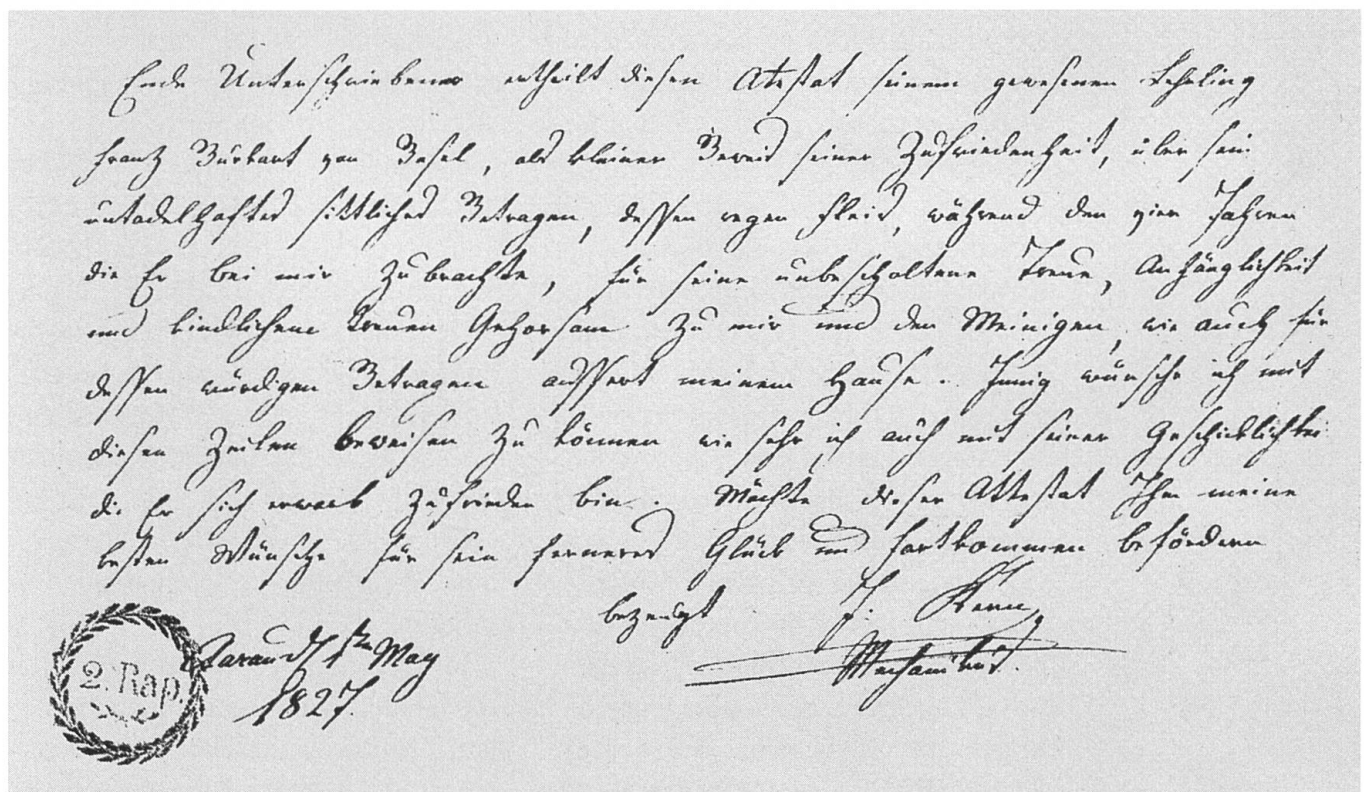 Ends Unterschriebener ertheilt diesen Atestat seinem gewesenen Lehrling
Frantz Bürkart von Basel, als kleiner Beweis seiner Zufriedenheit, über sein
untadelhaftes sittliches Betragen, dessen regen Fleis, während den vier Jahren
die Er bei mir zubrachte, für seine unbescholtene Treue, Anhänglichkeit
und kindlichen treuen Gehorsam zu mir und den Meinigen, wie auch für
dessen würdigen Betragen aussert meinem Hause. Innig wünsche ich mit
diesen Zeilen beweisen zu können wie sehr ich auch mit seiner Geschicklichkei
die Er sich erwarb zufrieden bin. Möchte dieser Attestat Ihm meine
besten Wünsche für sein ferneres Glück und Fortkommen befördern
bezeugt J. Kern
Mechanikus.
Aarau May
1827.
2. Rap.